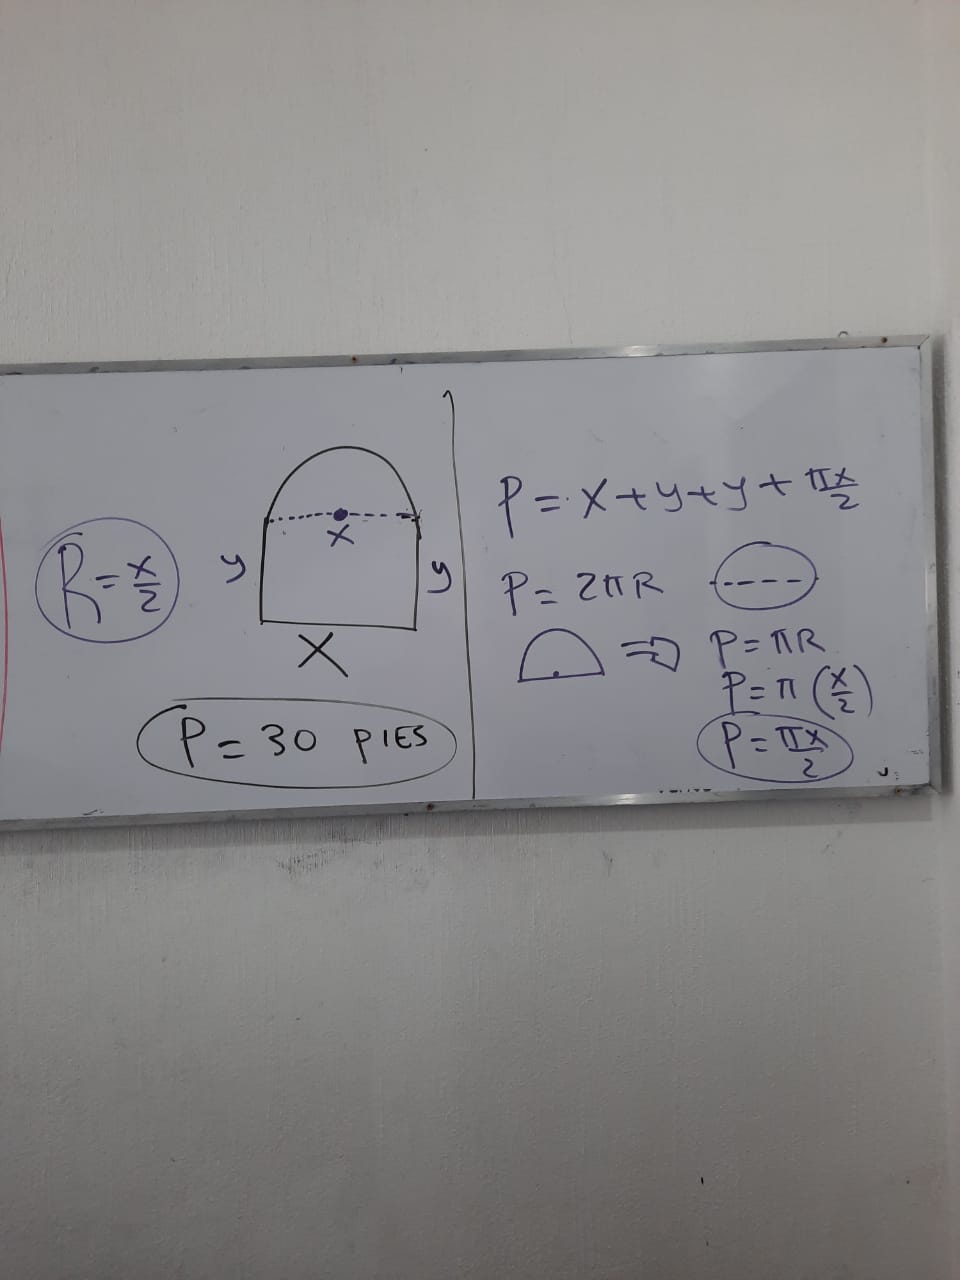 R = x/2
y
x
y
X
P = 30 PIES
P = x + y + y + πx/2
P = 2πR
P = πR
P = π (x/2)
P = πx/2